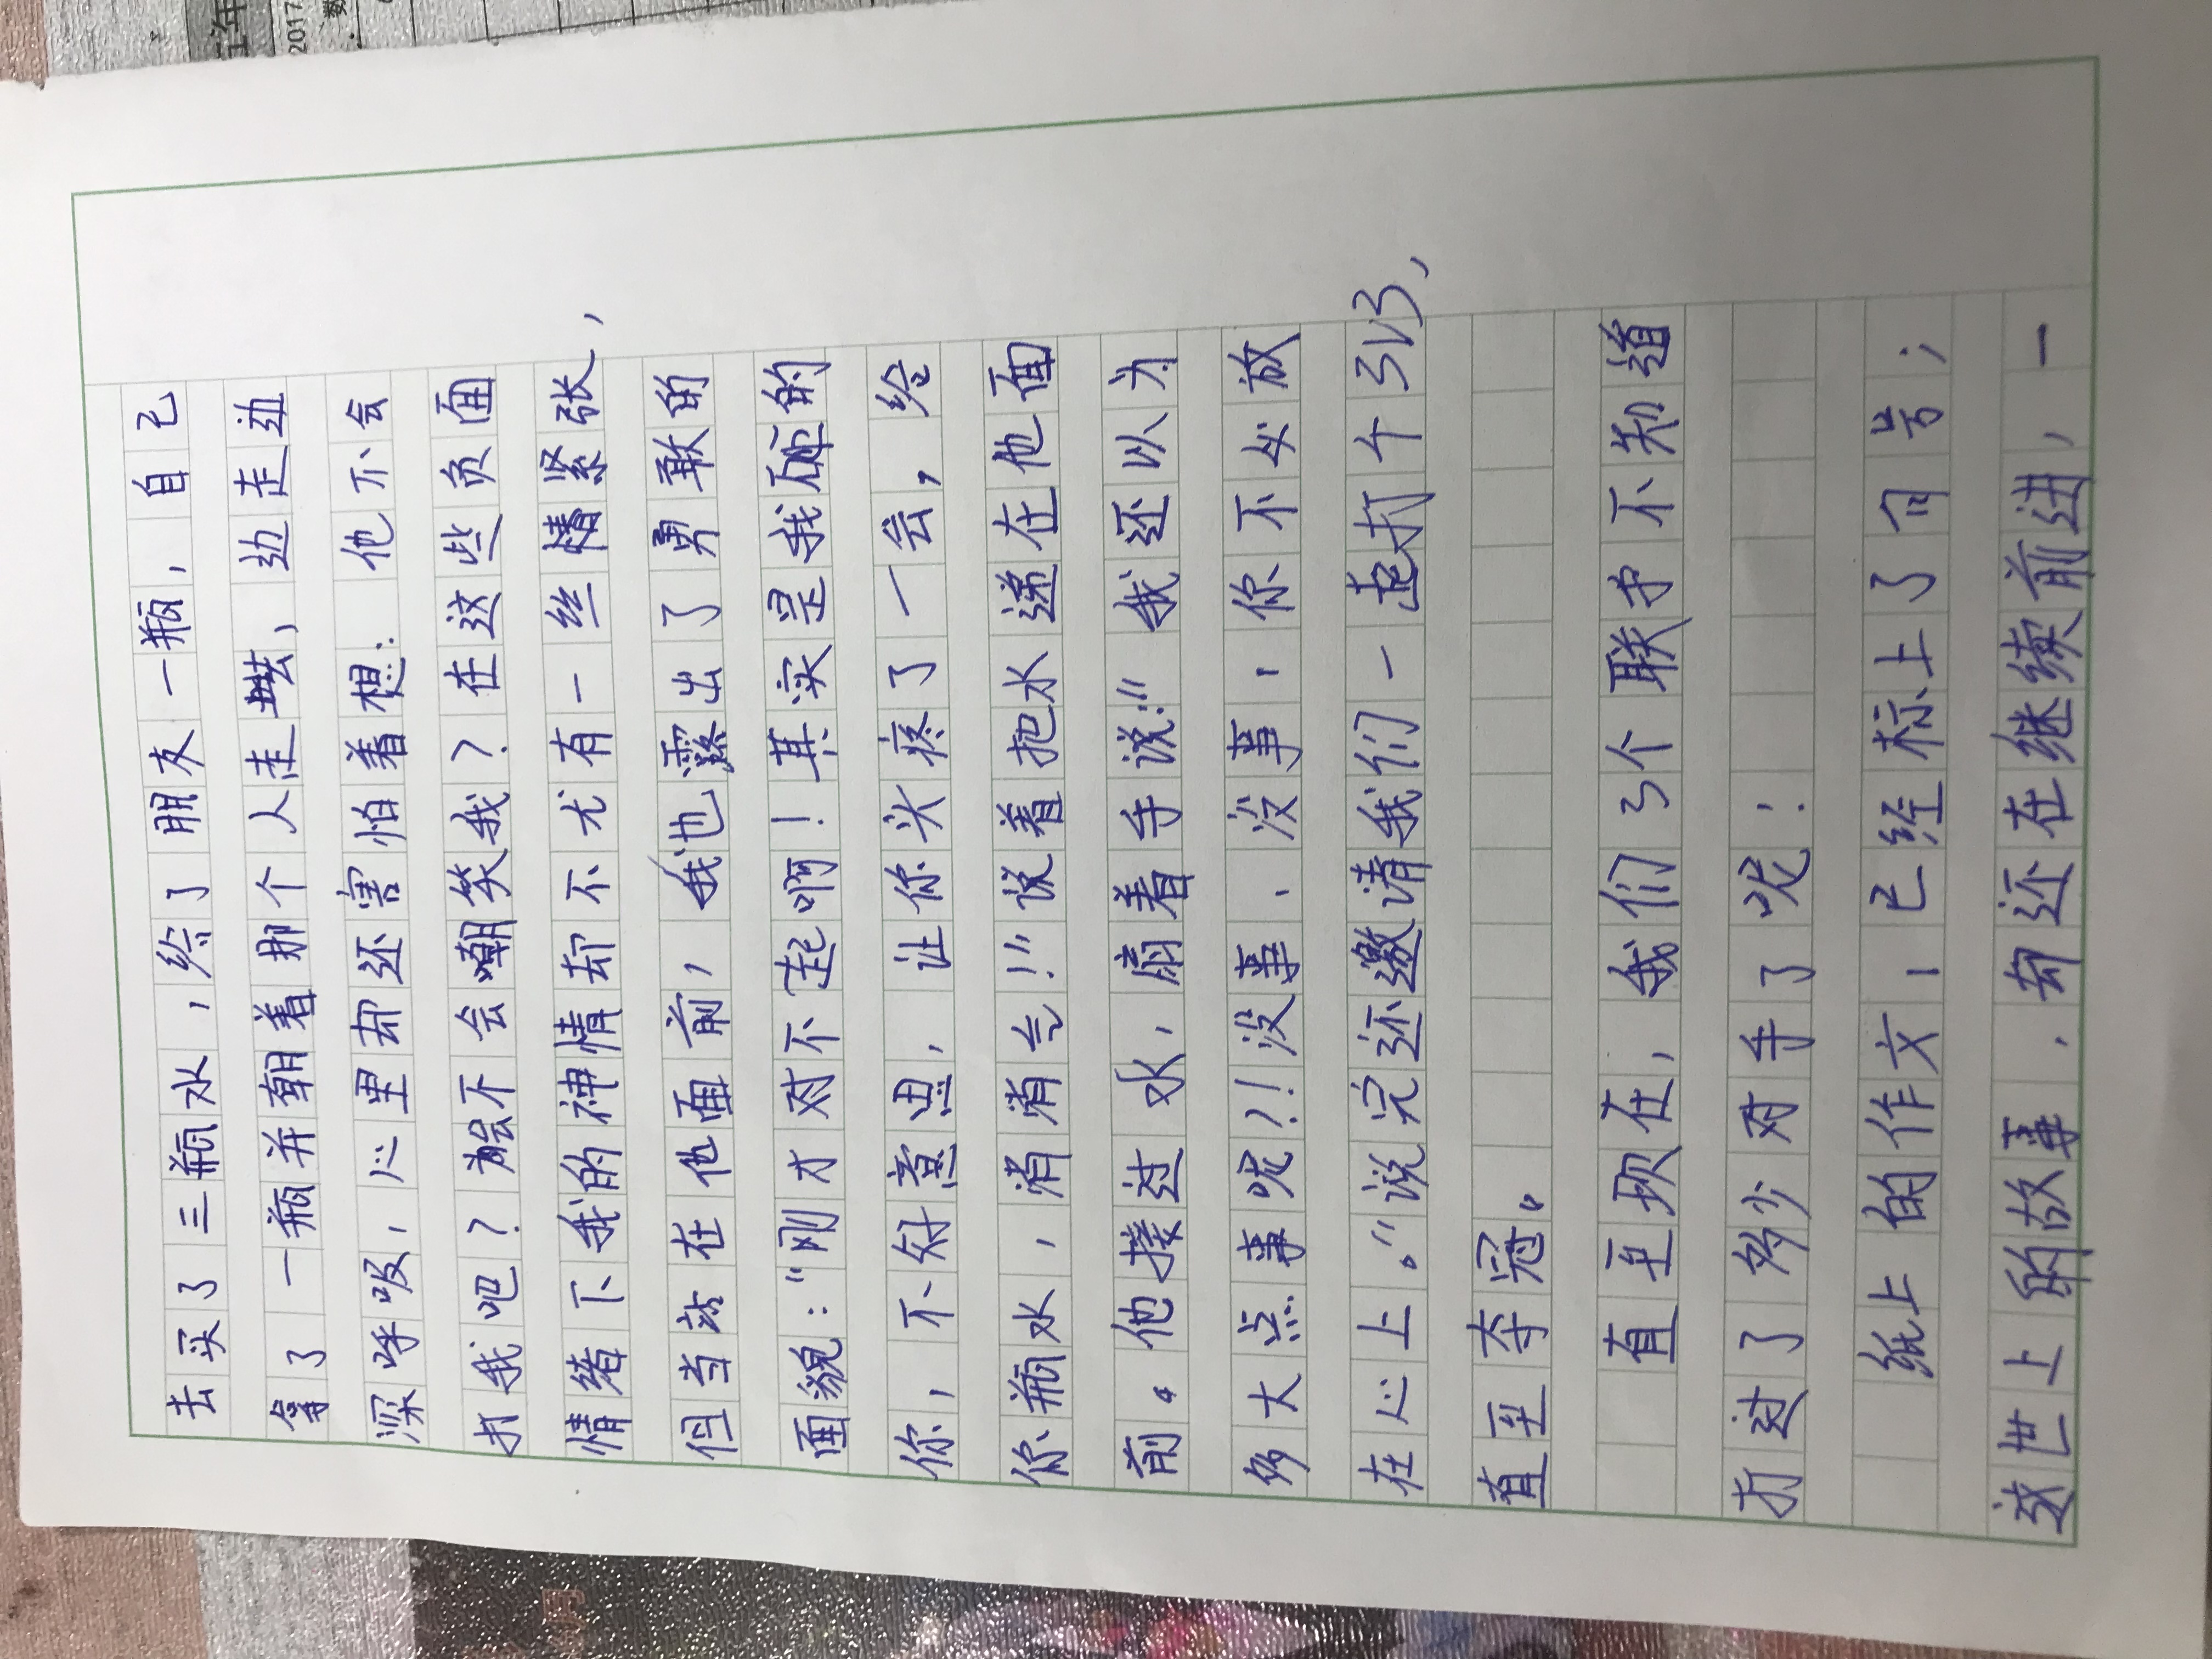 去买了三瓶水，给了朋友一瓶，自己
拿了一瓶并朝着那个人走去，边走边
深呼吸，心里却还害怕着想：他不会
打我吧？会不会嘲笑我？在这些负面
情绪下我的神情却不尤有一丝紧张，
但当站在他面前，我也露出了勇敢的
面貌：“刚才对不起啊！其实是我砸的
你，不好意思，让你头疼了一会，给
你瓶水，消消气！”说着把水递在他面
前。他接过水，扇着手说：“我还以为
多大点事呢？！没事、没事，你不必放
在心上。”说完还邀请我们一起打千3V3，
直至夺冠。
直至现在，我们3个联手不知道
打过了多少对手了呢！
纸上的作文，已经标上了句号；
这世上的故事，却还在继续前进，一
2017